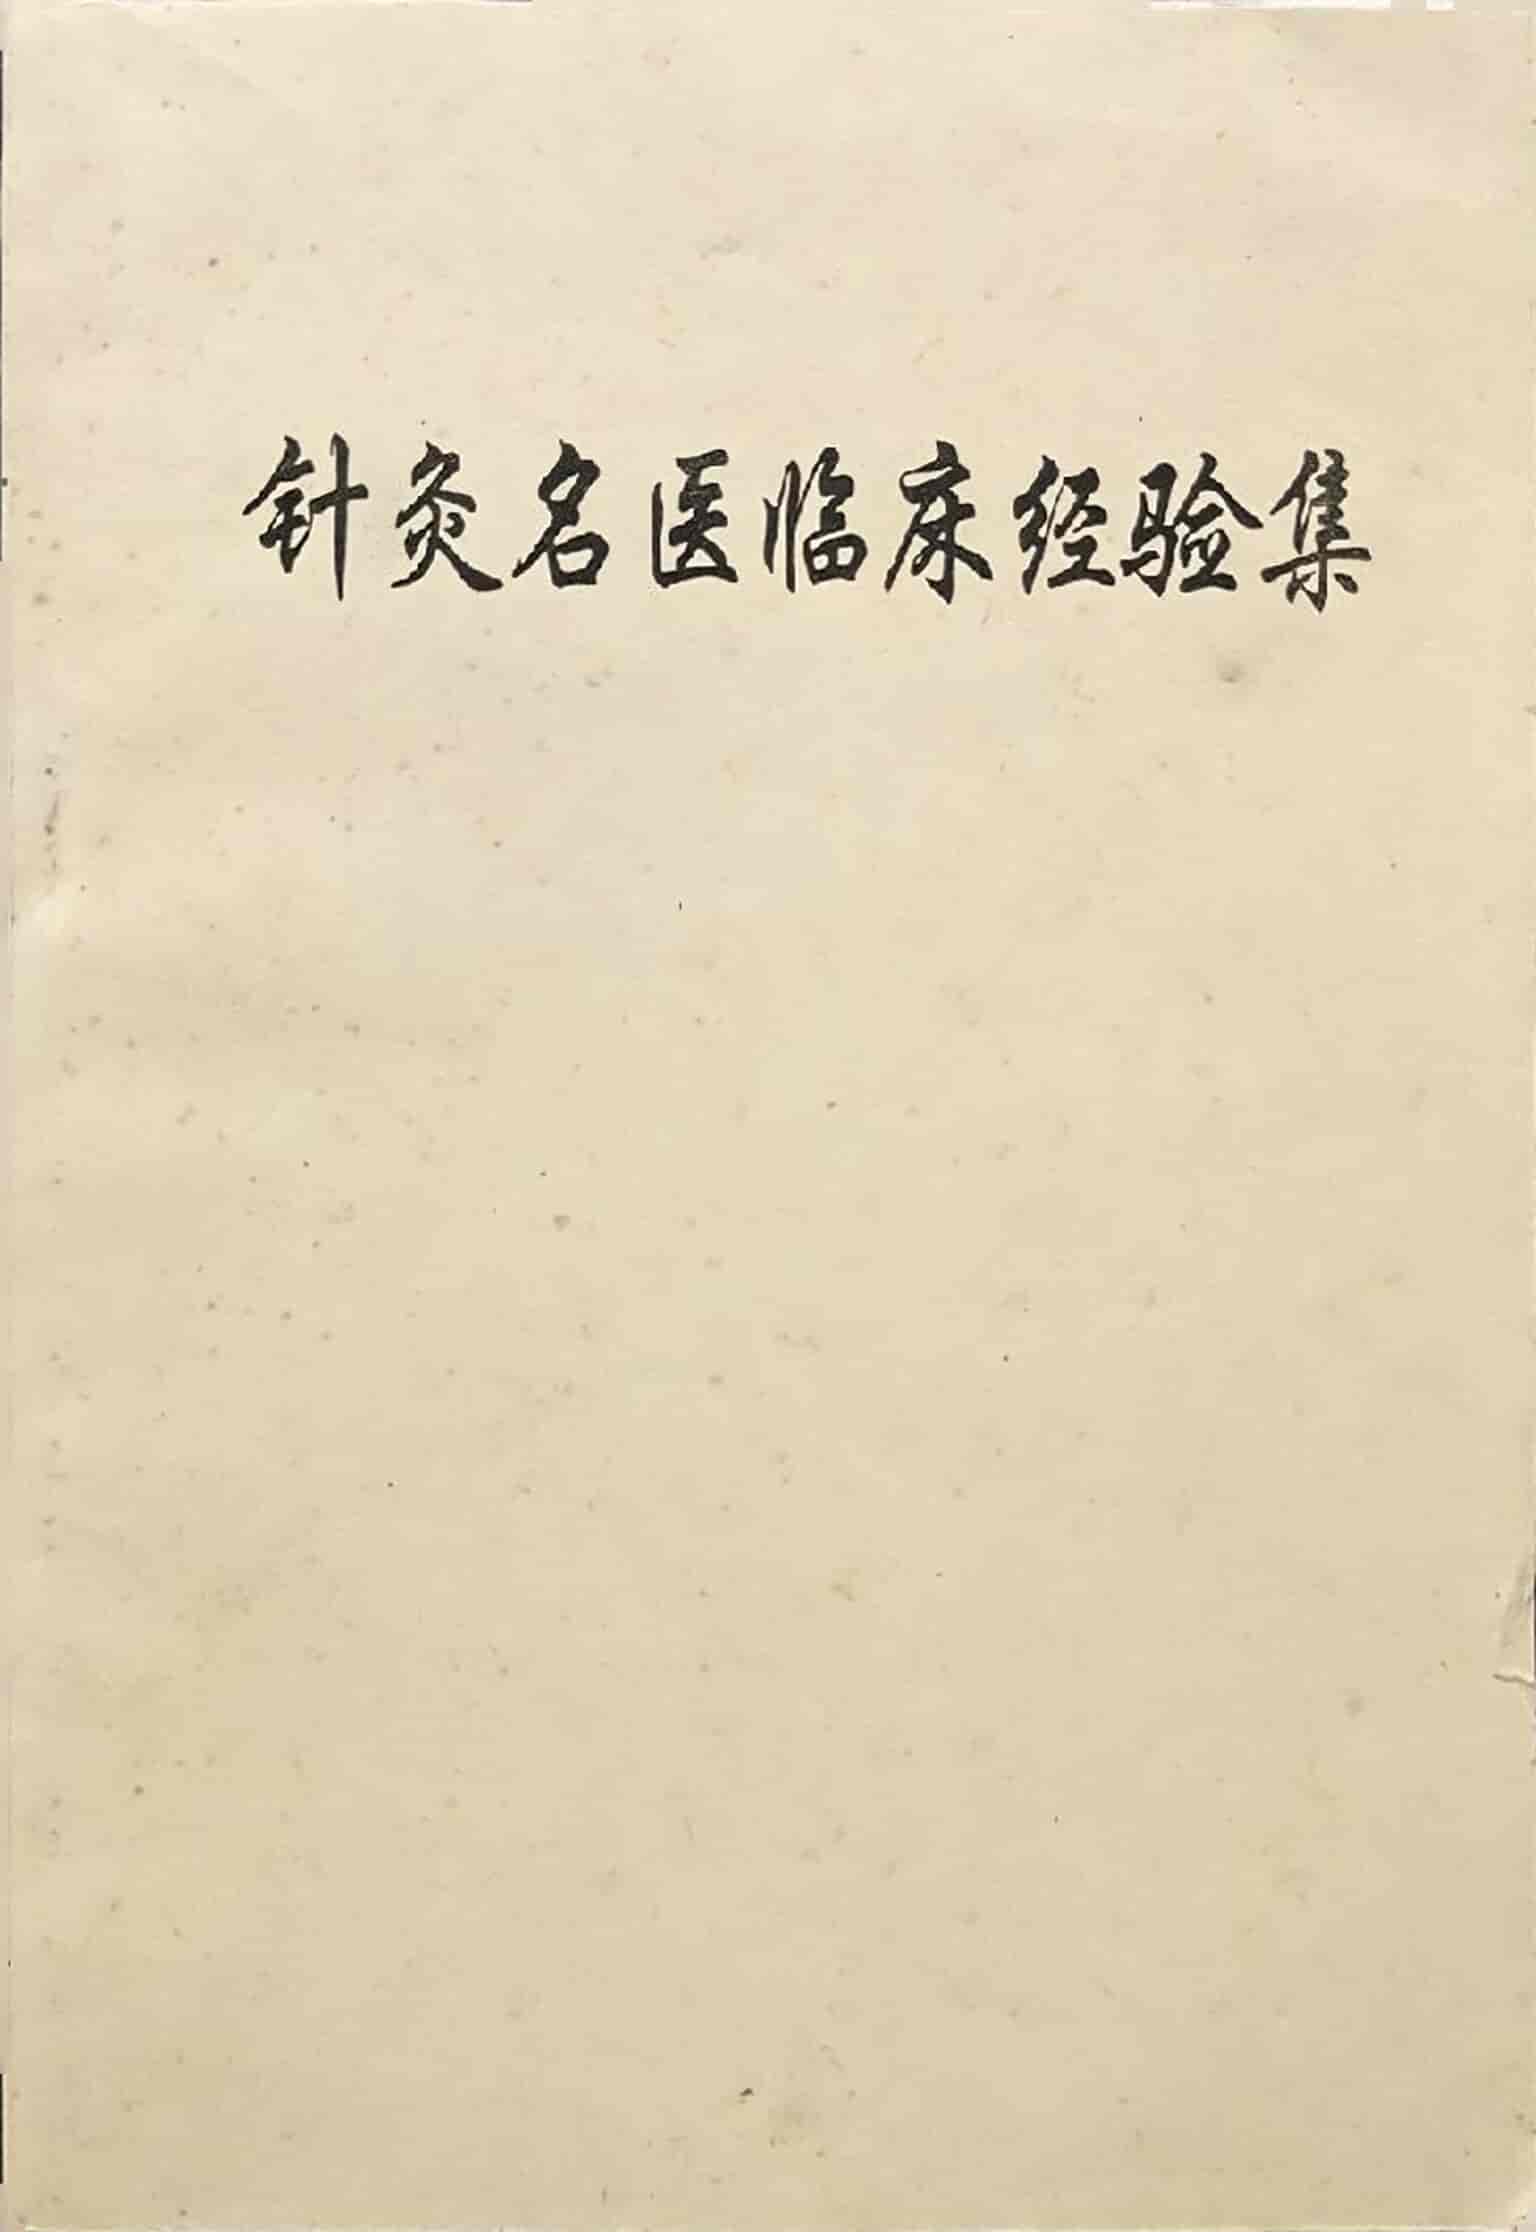 针灸名医临床经验集